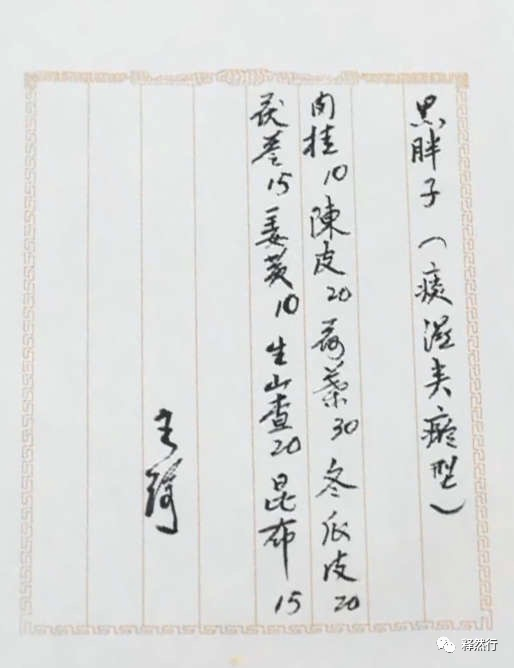 黑胖子（痰濕夾瘀型）
肉桂10 陳皮20 荷葉30 冬瓜皮20
茯苓15 姜黄10 生山查20 昆布15
王琦
释然行